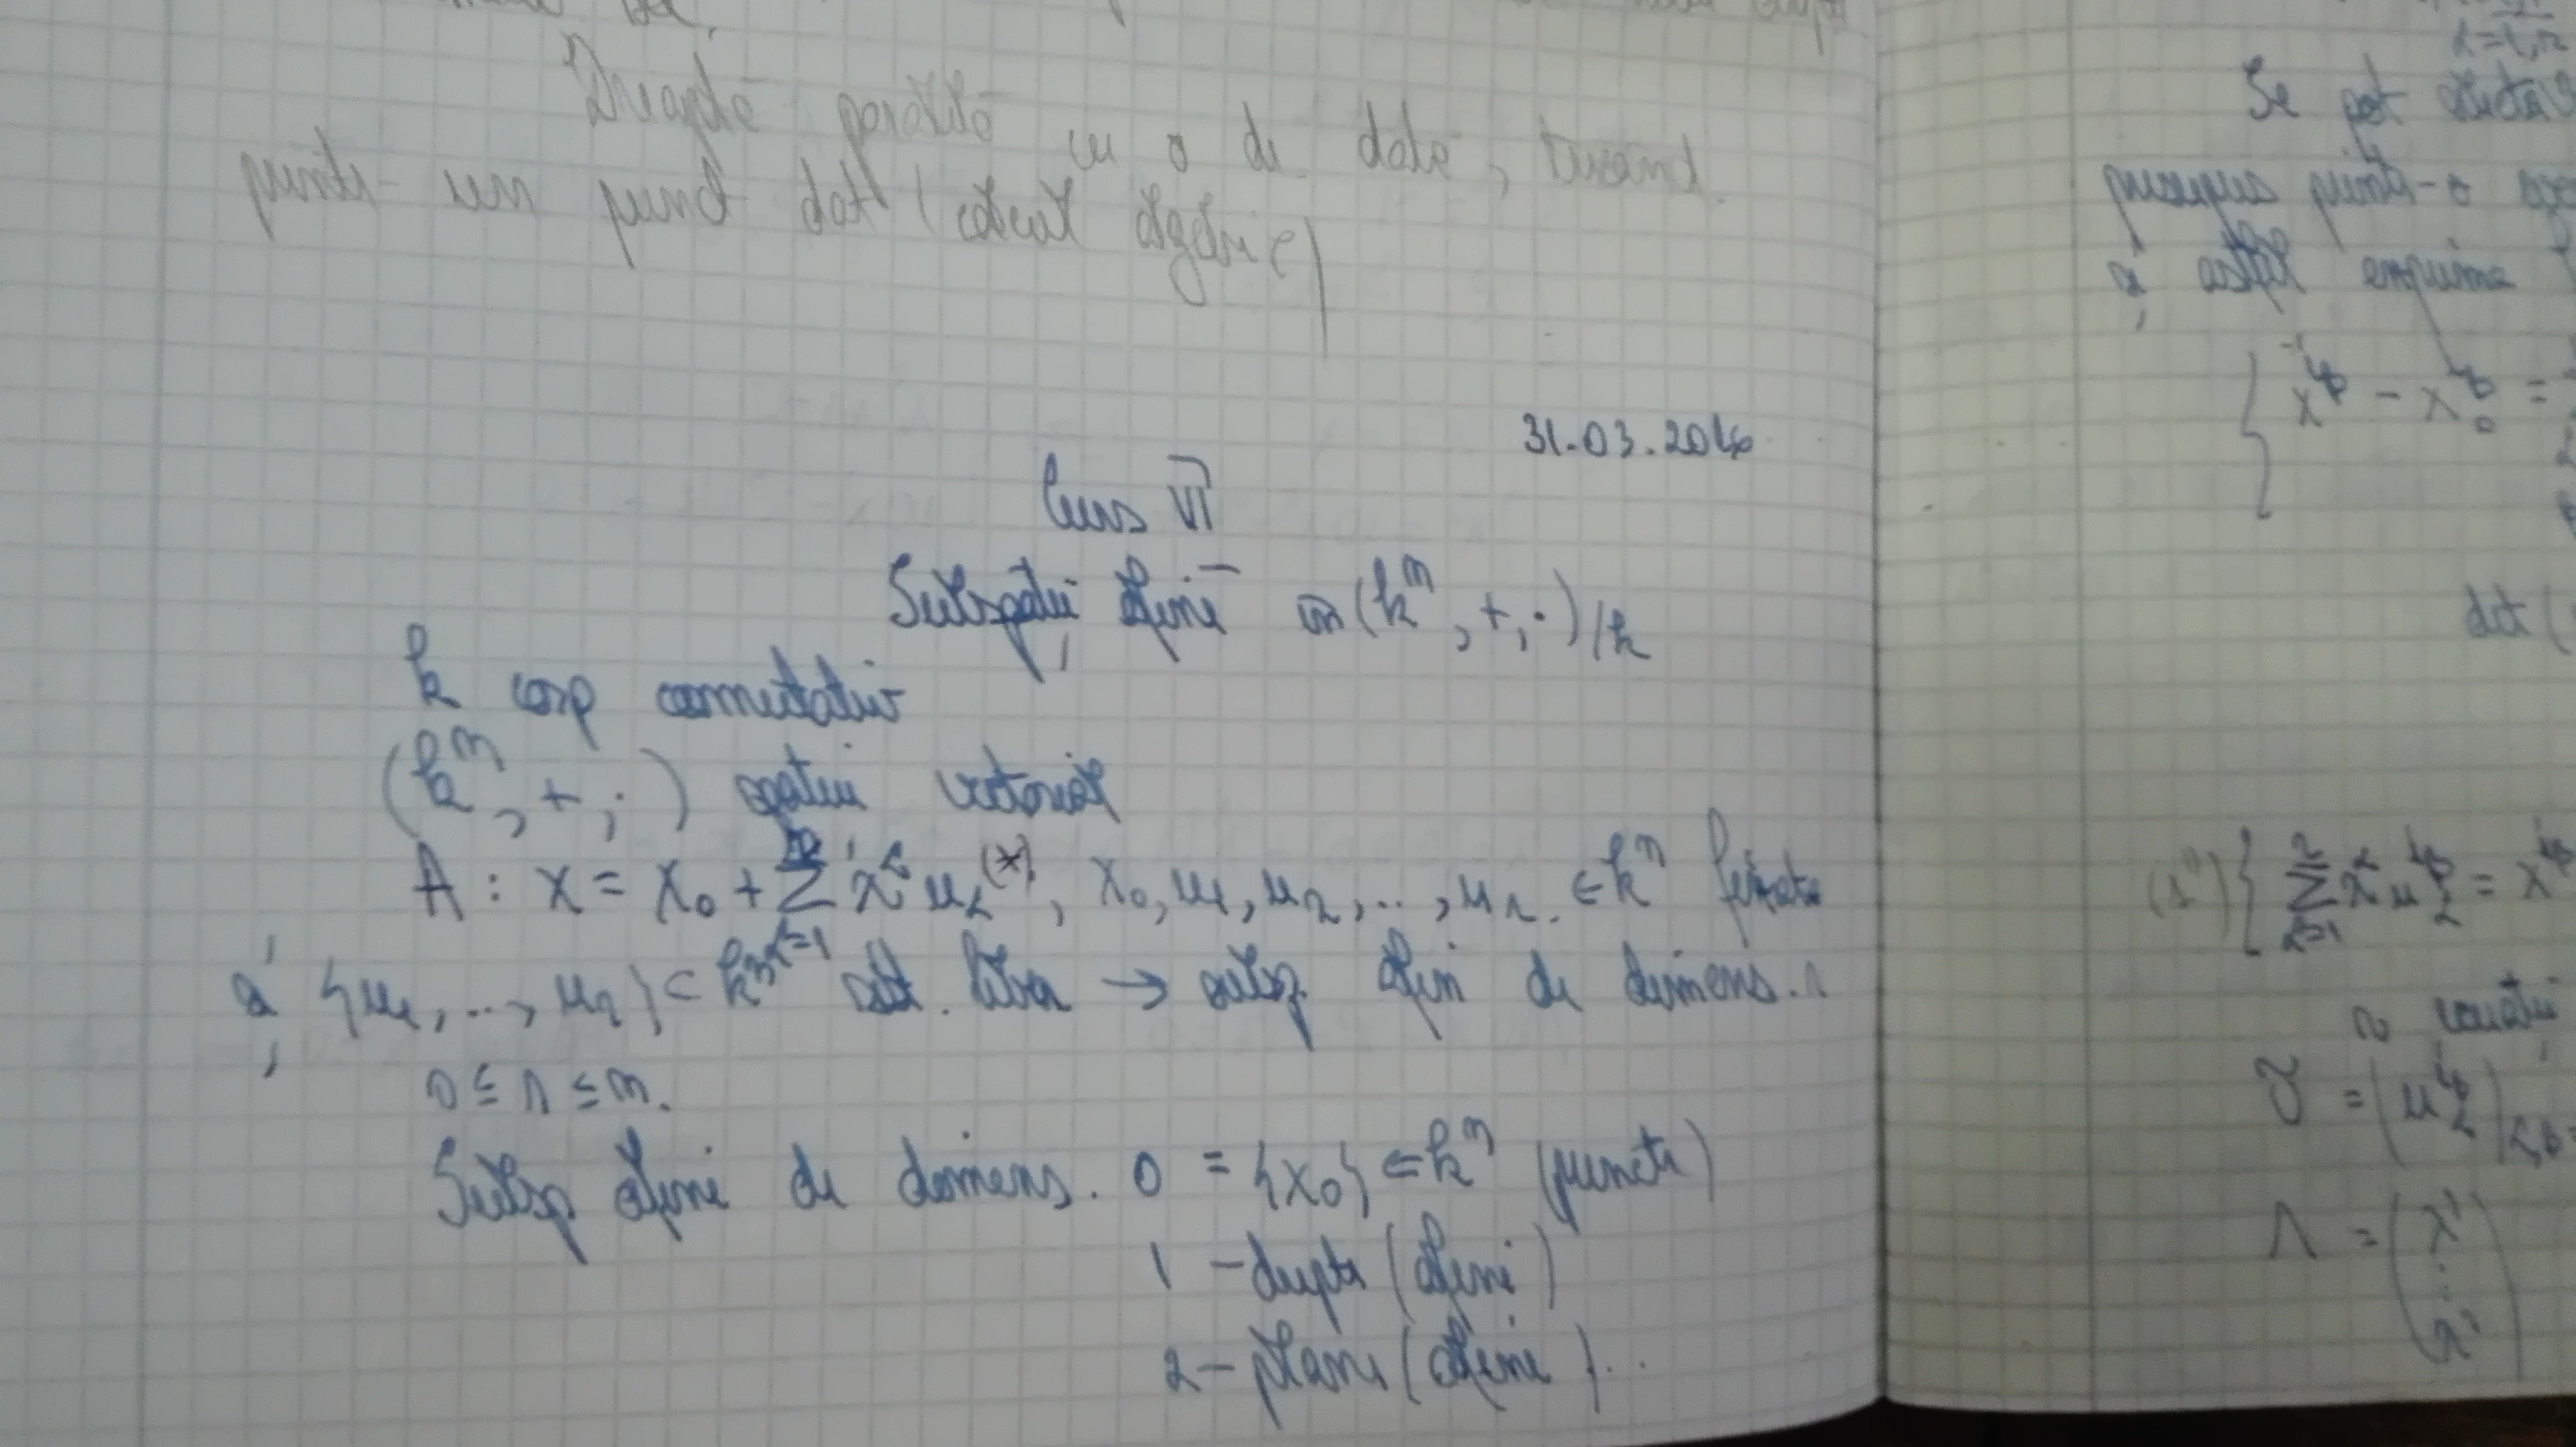 Dreaptă paralelă cu o dr. dată, trecând
printr-un punct dat (calcul algebric)
31.03.2016
Curs VI
Subspații afine în (k^n, +, ·)/k
k corp comutativ
(k^n, +, ·) spațiu vectorial
A : x = x_0 + Σ_{α=1}^{r} λ^α u_α (*), x_0, u_1, u_2, ..., u_r ∈ k^n fixate
și {u_1, ..., u_r} ⊂ k^n sist. liber → subsp. afin de dimens. r
0 ≤ r ≤ n.
Subsp afine de dimens. 0 = {x_0} ∈ k^n (puncte)
1 - drepte (afine)
2 - plane (afine) ...
Se pot
presupus printr-o
și astfel exprima
{ x^β - x_0^β =
det (
(1") { Σ_{α=1}^{r} λ^α u_α^β = x^β
n ecuații
U = (u_α^β)
Λ = (λ^1 ⋮ λ^r)